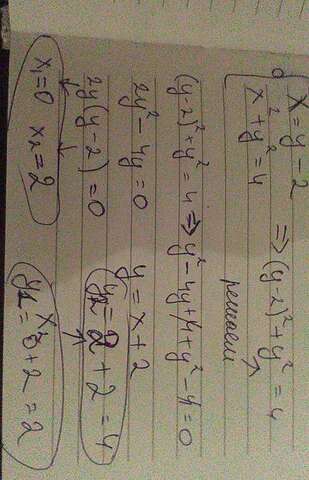 x = y - 2
x² + y² = 4 ⇒ (y-2)² + y² = 4
решаем
(y-2)² + y² = 4 ⇒ y² - 4y + 4 + y² - 4 = 0
2y² - 4y = 0 y = x + 2
2y(y-2) = 0 y₂ = 2 + 2 = 4
x₁ = 0 x₂ = 2 y₁ = 0 + 2 = 2